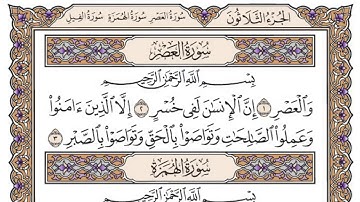 الجزء الثلاثون سورة العصر سورة الهمزة سورة الفيل
سُورَةُ الْعَصْرِ
بِسْمِ اللَّهِ الرَّحْمَٰنِ الرَّحِيمِ
وَالْعَصْرِ ١ إِنَّ الْإِنسَانَ لَفِي خُسْرٍ ٢ إِلَّا الَّذِينَ آمَنُوا
وَعَمِلُوا الصَّالِحَاتِ وَتَوَاصَوْا بِالْحَقِّ وَتَوَاصَوْا بِالصَّبْرِ ٣
سُورَةُ الْهُمَزَةِ
بِسْمِ اللَّهِ الرَّحْمَٰنِ الرَّحِيمِ